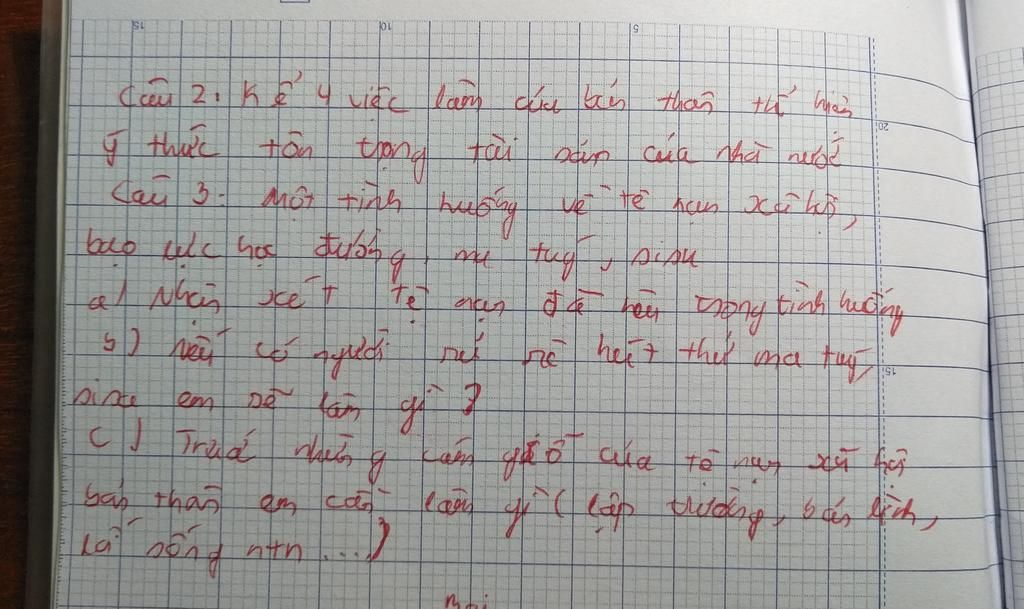 15 10 5
Câu 2. Kể 4 việc làm của bản thân thể hiện
20
ý thức tôn trọng tài sản của nhà nước
Câu 3: Một tình huống về tệ nạn xã hội,
bạo lực học đường, ma tuý, sisu
a) Nhận xét tệ nạn đề trong tình huống
b) nếu có người rủ rê hút thử ma tuý,
15
sisu em sẽ làm gì?
c) Trước những cám giỗ của tệ nạn xã hội
bản thân em cần làm gì (lập trường, bản lĩnh,
lối sống ntn ....)